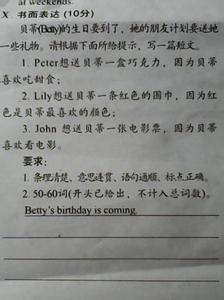 al weekends.
X 书面表达(10分)
贝蒂(Betty)的生日要到了，她的朋友计划要送她
一些礼物。请根据下面所给提示，写一篇短文。
1. Peter想送贝蒂一盒巧克力，因为贝蒂
喜欢吃甜食；
2. Lily想送贝蒂一条红色的围巾，因为红
色是贝蒂最喜欢的颜色；
3. John 想送贝蒂一张电影票，因为贝蒂
喜欢看电影。
要求：
1. 条理清楚、意思连贯、语句通顺、标点正确。
2. 50-60词(开头已给出，不计入总词数)。
Betty's birthday is coming.